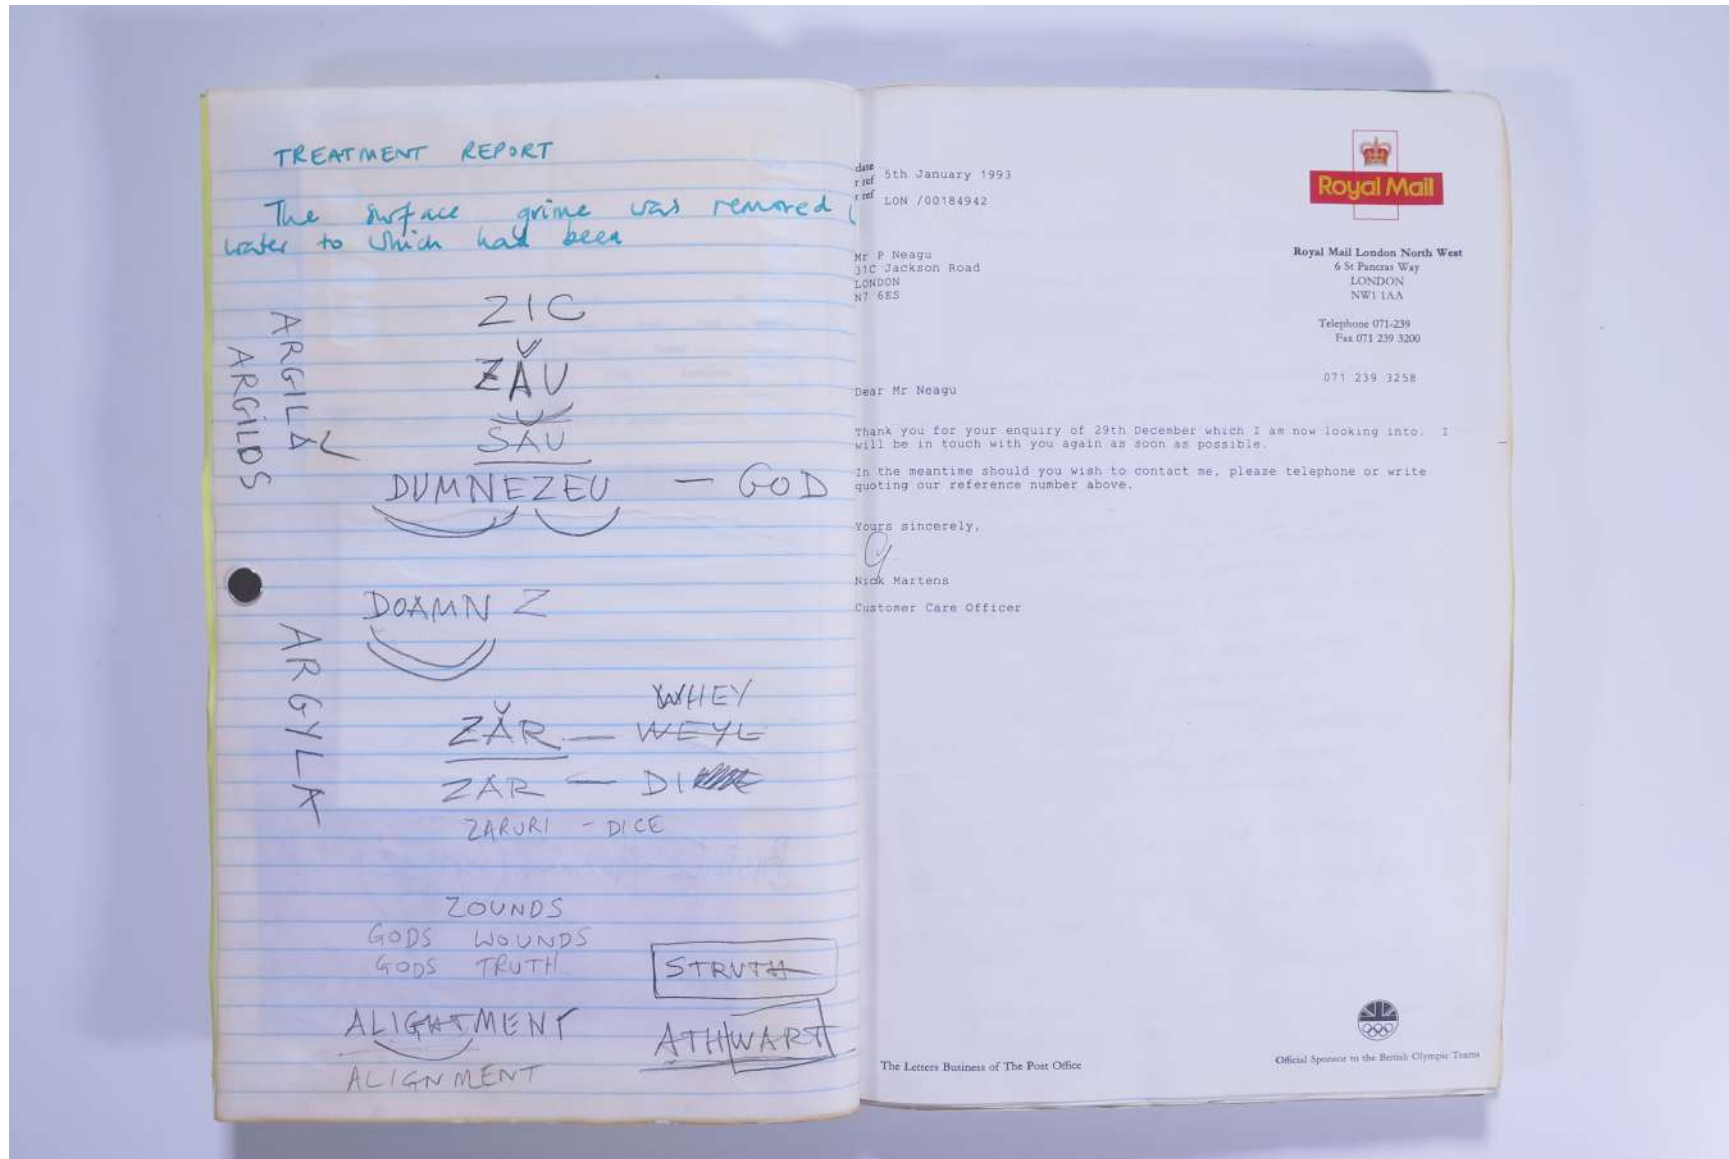 TREATMENT REPORT
The surface grime was removed
water to which had been
ZIC
ZĂU
SĂU
DUMNEZEU — GOD
DOAMN Z
WHEY
ZĂR — WEYL
ZAR — DI
ZARURI - DICE
ZOUNDS
GODS WOUNDS
GODS TRUTH
STRUTH
ALIGHTMENT
ATHWART
ALIGNMENT
ARGILĂ
ARGILOS
ARGYLA
Royal Mail
date
r ref
r ref
5th January 1993
LON /00184942
Mr P Neagu
31C Jackson Road
LONDON
N7 6ES
Royal Mail London North West
6 St Pancras Way
LONDON
NW1 1AA
Telephone 071-239
Fax 071 239 3200
071 239 3258
Dear Mr Neagu
Thank you for your enquiry of 29th December which I am now looking into. I
will be in touch with you again as soon as possible.
In the meantime should you wish to contact me, please telephone or write
quoting our reference number above.
Yours sincerely,
Nick Martens
Customer Care Officer
The Letters Business of The Post Office
Official Sponsor to the British Olympic Teams